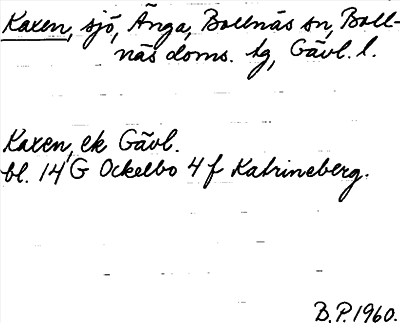 Kaxen, sjö, Änga, Bollnäs sn, Boll-
näs doms. tg, Gävl. l.
Kaxen, ek Gävl.
bl. 14 G Ockelbo 4 f Katrineberg.
B.P. 1960.